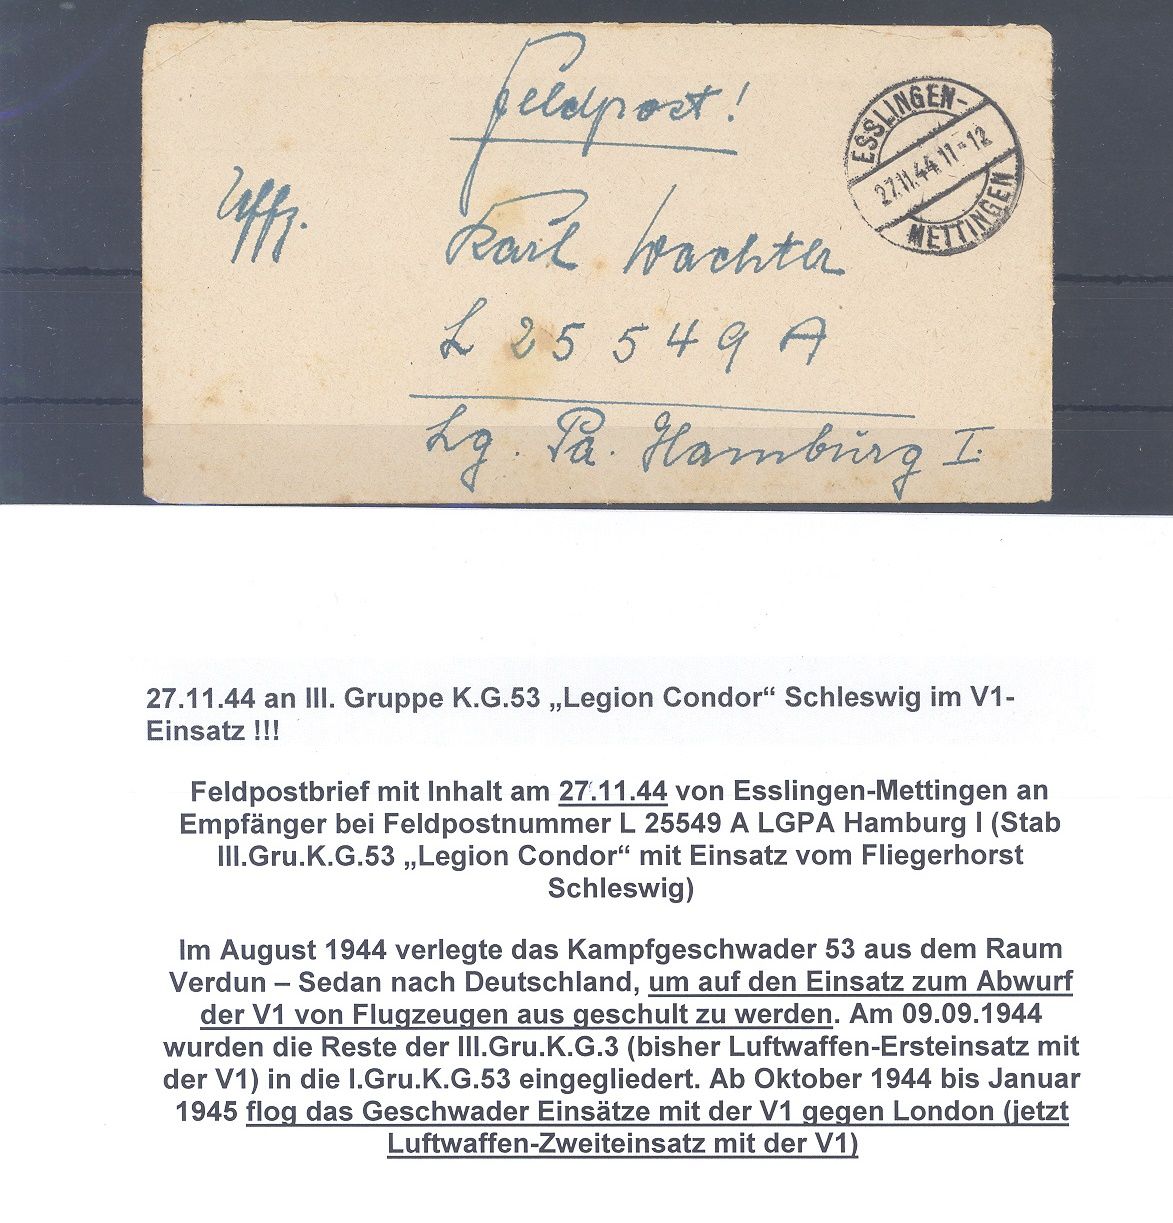 Feldpost!
ESSLINGEN-
27.11.44.11-12
METTINGEN
Uffz.
Karl Wachter
L 25549 A
Lg. Pa. Hamburg I.
27.11.44 an III. Gruppe K.G.53 „Legion Condor“ Schleswig im V1-
Einsatz !!!
Feldpostbrief mit Inhalt am 27.11.44 von Esslingen-Mettingen an
Empfänger bei Feldpostnummer L 25549 A LGPA Hamburg I (Stab
III.Gru.K.G.53 „Legion Condor“ mit Einsatz vom Fliegerhorst
Schleswig)
Im August 1944 verlegte das Kampfgeschwader 53 aus dem Raum
Verdun – Sedan nach Deutschland, um auf den Einsatz zum Abwurf
der V1 von Flugzeugen aus geschult zu werden. Am 09.09.1944
wurden die Reste der III.Gru.K.G.3 (bisher Luftwaffen-Ersteinsatz mit
der V1) in die I.Gru.K.G.53 eingegliedert. Ab Oktober 1944 bis Januar
1945 flog das Geschwader Einsätze mit der V1 gegen London (jetzt
Luftwaffen-Zweiteinsatz mit der V1)